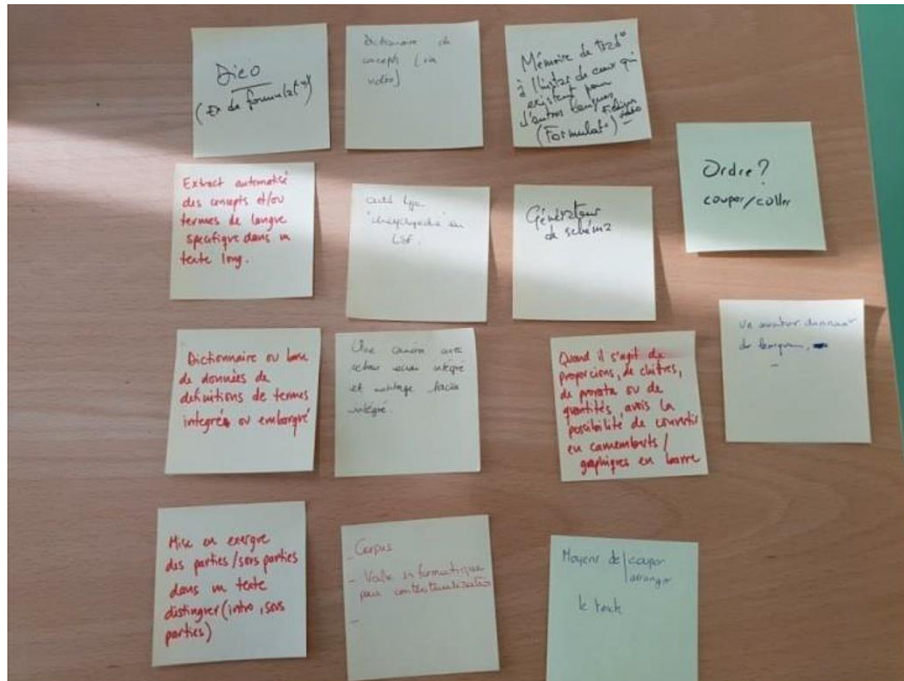 Dico
(Ex de formulat°)
Dictionnaire de
concepts (via
vidéo)
Mémoire de trad°
à l'instar de ceux qui
existent pour
d'autres langues
(Formulat°) vidéo
Ordre?
couper/coller
Extract automatisé
des concepts et/ou
termes de langue
specifique dans un
texte long.
outil type
en
LSF.
Générateur
de schéma
Dictionnaire ou base
de données de
definitions de termes
integrés ou embarqué
Une caméra avec
retour écran intégré
et montage facile
intégré.
Quand il s'agit de
proporcions, de chifres,
de prorata ou de
quantités, avoir la
possibilité de convertir
en camemberts/
graphiques en barre
Mise en exergue
des parties/sous parties
dans un texte
distinguer (intro, sous
parties)
- Corpus
- informatique
pour contextualisation
-
Moyens de couper
arranger
le texte